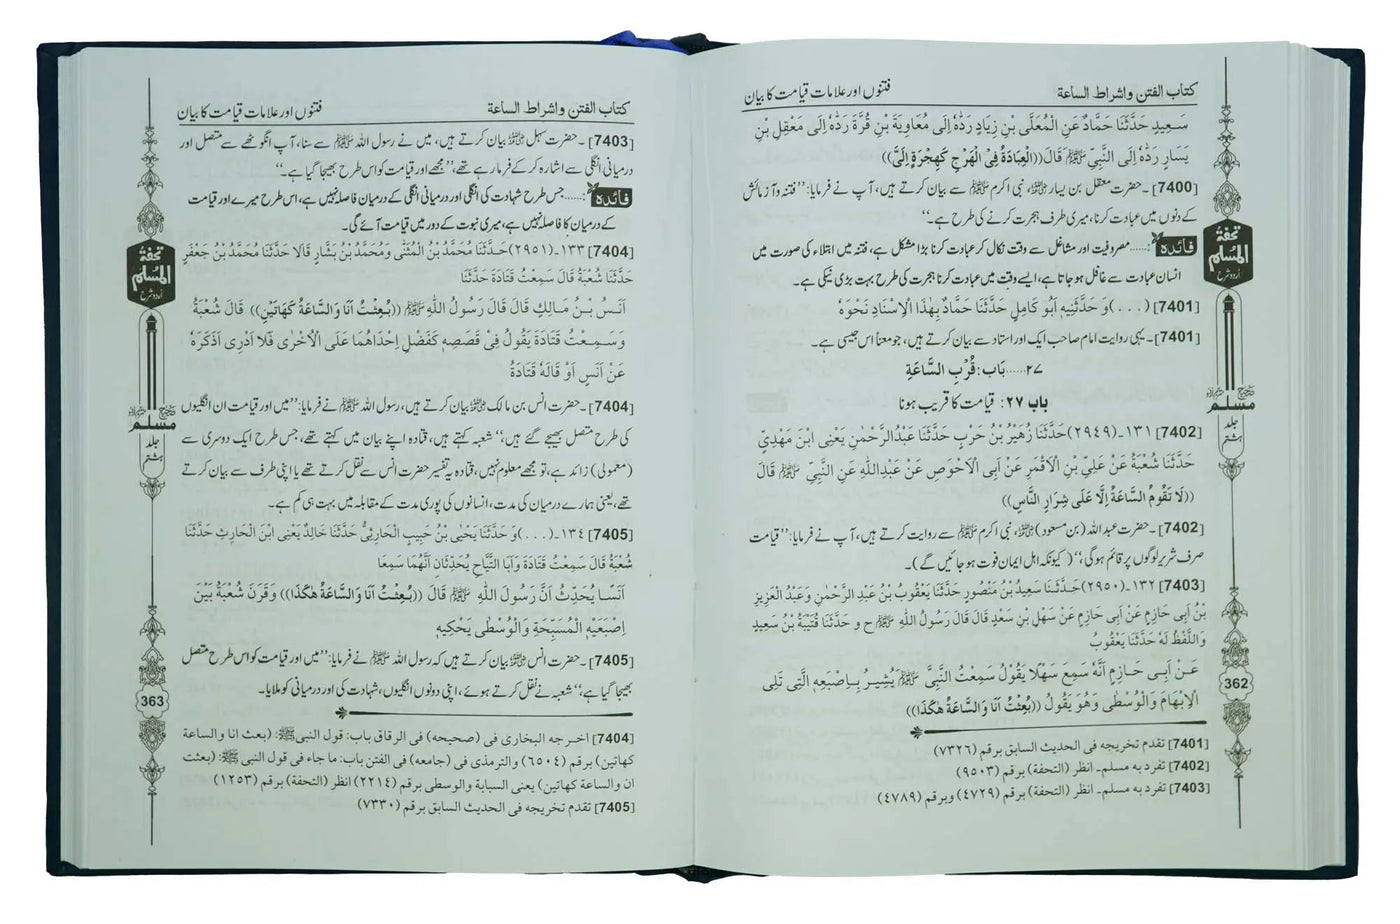 كتاب الفتن واشراط الساعة
فتنوں اور علامات قیامت کا بیان
سَعِيدٍ حَدَّثَنَا حَمَّادٌ عَنِ الْمُعَلَّى بْنِ زِيَادٍ رَدَّهُ إِلَى مُعَاوِيَةَ بْنِ قُرَّةَ رَدَّهُ إِلَى مَعْقِلِ بْنِ
يَسَارٍ رَدَّهُ إِلَى النَّبِيِّ ﷺ قَالَ ((الْعِبَادَةُ فِي الْهَرْجِ كَهِجْرَةٍ إِلَيَّ))
[7400]۔ حضرت معقل بن یسار رضی اللہ عنہ، نبی اکرم ﷺ سے بیان کرتے ہیں، آپ نے فرمایا: ”فتنہ و آزمائش
کے دنوں میں عبادت کرنا، میری طرف ہجرت کرنے کی طرح ہے۔“
فائدہ:...... مصروفیت اور مشاغل سے وقت نکال کر عبادت کرنا بڑا مشکل ہے، فتنہ میں ابتلاء کی صورت میں
انسان عبادت سے غافل ہو جاتا ہے، ایسے وقت میں عبادت کرنا ہجرت کی طرح بہت بڑی نیکی ہے۔
[7401] (...) وَ حَدَّثَنِيهِ أَبُو كَامِلٍ حَدَّثَنَا حَمَّادٌ بِهٰذَا الْإِسْنَادِ نَحْوَهُ
[7401]۔ یہی روایت امام صاحب ایک اور استاد سے بیان کرتے ہیں، جو معناً اس جیسی ہے۔
٢٧......بَاب: قُرْبِ السَّاعَةِ
باب ٢٧: قیامت کا قریب ہونا
[7402] ١٣١۔(٢٩٤٩) حَدَّثَنَا زُهَيْرُ بْنُ حَرْبٍ حَدَّثَنَا عَبْدُالرَّحْمٰنِ يَعْنِي ابْنَ مَهْدِيٍّ
حَدَّثَنَا شُعْبَةُ عَنْ عَلِيِّ بْنِ الْأَقْمَرِ عَنْ أَبِي الْأَحْوَصِ عَنْ عَبْدِاللّٰهِ عَنِ النَّبِيِّ ﷺ قَالَ
((لَا تَقُومُ السَّاعَةُ إِلَّا عَلَى شِرَارِ النَّاسِ))
[7402]۔ حضرت عبد اللہ (بن مسعود) رضی اللہ عنہ، نبی اکرم ﷺ سے روایت کرتے ہیں، آپ نے فرمایا: ”قیامت
صرف شریر لوگوں پر قائم ہوگی“، (کیونکہ اہل ایمان فوت ہو جائیں گے)۔
[7403] ١٣٢۔(٢٩٥٠) حَدَّثَنَا سَعِيدُ بْنُ مَنْصُورٍ حَدَّثَنَا يَعْقُوبُ بْنُ عَبْدِ الرَّحْمٰنِ وَعَبْدُ الْعَزِيزِ
بْنُ أَبِي حَازِمٍ عَنْ أَبِي حَازِمٍ عَنْ سَهْلِ بْنِ سَعْدٍ قَالَ قَالَ رَسُولُ اللّٰهِ ﷺ ح و حَدَّثَنَا قُتَيْبَةُ بْنُ سَعِيدٍ
وَاللَّفْظُ لَهُ حَدَّثَنَا يَعْقُوبُ
عَنْ أَبِي حَازِمٍ أَنَّهُ سَمِعَ سَهْلًا يَقُولُ سَمِعْتُ النَّبِيَّ ﷺ يُشِيرُ بِإِصْبَعِهِ الَّتِي تَلِي
الْإِبْهَامَ وَالْوُسْطَى وَهُوَ يَقُولُ ((بُعِثْتُ أَنَا وَالسَّاعَةُ هٰكَذَا))
[7401] تقدم تخريجه في الحديث السابق برقم (٧٣٢٦)
[7402] تفرد به مسلم۔ انظر (التحفة) برقم (٩٥٠٣)
[7403] تفرد به مسلم۔ انظر (التحفة) برقم (٤٧٢٩) وبرقم (٤٧٨٩)
تحفۃ
المسلم
اردو شرح
صحیح
مسلم
جلد
ہشتم
362
كتاب الفتن واشراط الساعة
فتنوں اور علامات قیامت کا بیان
[7403]۔ حضرت سہل رضی اللہ عنہ بیان کرتے ہیں، میں نے رسول اللہ ﷺ سے سنا، آپ انگوٹھے سے متصل اور
درمیانی انگلی سے اشارہ کر کے فرما رہے تھے، ”مجھے اور قیامت کو اس طرح بھیجا گیا ہے۔“
فائدہ:...... جس طرح شہادت کی انگلی اور درمیانی انگلی کے درمیان فاصلہ نہیں ہے، اس طرح میرے اور قیامت
کے درمیان کا فاصلہ نہیں ہے، میری نبوت کے دور میں قیامت آئے گی۔
[7404] ١٣٣۔(٢٩٥١) حَدَّثَنَا مُحَمَّدُ بْنُ الْمُثَنَّى وَمُحَمَّدُ بْنُ بَشَّارٍ قَالَا حَدَّثَنَا مُحَمَّدُ بْنُ جَعْفَرٍ
حَدَّثَنَا شُعْبَةُ قَالَ سَمِعْتُ قَتَادَةَ حَدَّثَنَا
أَنَسُ بْنُ مَالِكٍ قَالَ قَالَ رَسُولُ اللّٰهِ ﷺ ((بُعِثْتُ أَنَا وَالسَّاعَةُ كَهَاتَيْنِ)) قَالَ شُعْبَةُ
وَسَمِعْتُ قَتَادَةَ يَقُولُ فِي قَصَصِهِ كَفَضْلِ إِحْدَاهُمَا عَلَى الْأُخْرٰى فَلَا أَدْرِي أَذَكَرَهُ
عَنْ أَنَسٍ أَوْ قَالَهُ قَتَادَةُ
[7404]۔ حضرت انس بن مالک رضی اللہ عنہ بیان کرتے ہیں، رسول اللہ ﷺ نے فرمایا: ”میں اور قیامت ان انگلیوں
کی طرح متصل بھیجے گئے ہیں“، شعبہ کہتے ہیں، قتادہ اپنے بیان میں کہتے تھے، جس طرح ایک دوسری سے
(معمولی) زائد ہے، تو مجھے معلوم نہیں، قتادہ یہ تفسیر حضرت انس سے نقل کرتے تھے یا اپنی طرف سے بیان کرتے
تھے، یعنی ہمارے درمیان کی مدت، انسانوں کی پوری مدت کے مقابلہ میں بہت ہی کم ہے۔
[7405] ١٣٤۔(...) وَ حَدَّثَنَا يَحْيَى بْنُ حَبِيبٍ الْحَارِثِيُّ حَدَّثَنَا خَالِدٌ يَعْنِي ابْنَ الْحَارِثِ حَدَّثَنَا
شُعْبَةُ قَالَ سَمِعْتُ قَتَادَةَ وَأَبَا التَّيَّاحِ يُحَدِّثَانِ أَنَّهُمَا سَمِعَا
أَنَسًا يُحَدِّثُ أَنَّ رَسُولَ اللّٰهِ ﷺ قَالَ ((بُعِثْتُ أَنَا وَالسَّاعَةُ هٰكَذَا)) وَقَرَنَ شُعْبَةُ بَيْنَ
إِصْبَعَيْهِ الْمُسَبِّحَةِ وَالْوُسْطَى يَحْكِيهِ
[7405]۔ حضرت انس رضی اللہ عنہ بیان کرتے ہیں کہ رسول اللہ ﷺ نے فرمایا: ”میں اور قیامت کو اس طرح متصل
بھیجا گیا ہے“، شعبہ نے نقل کرتے ہوئے، اپنی دونوں انگلیوں، شہادت کی اور درمیانی کو ملایا۔
[7404] اخرجه البخاري في (صحيحه) في الرقاق باب: قول النبي ﷺ: (بعثت انا والساعة
كهاتين) برقم (٦٥٠٤) والترمذي في (جامعه) في الفتن باب: ما جاء في قول النبي ﷺ: (بعثت
ان والساعة كهاتين) يعني السبابة والوسطى برقم (٢٢١٤) انظر (التحفة) برقم (١٢٥٣)
[7405] تقدم تخريجه في الحديث السابق برقم (٧٣٣٠)
تحفۃ
المسلم
اردو شرح
صحیح
مسلم
جلد
ہشتم
363